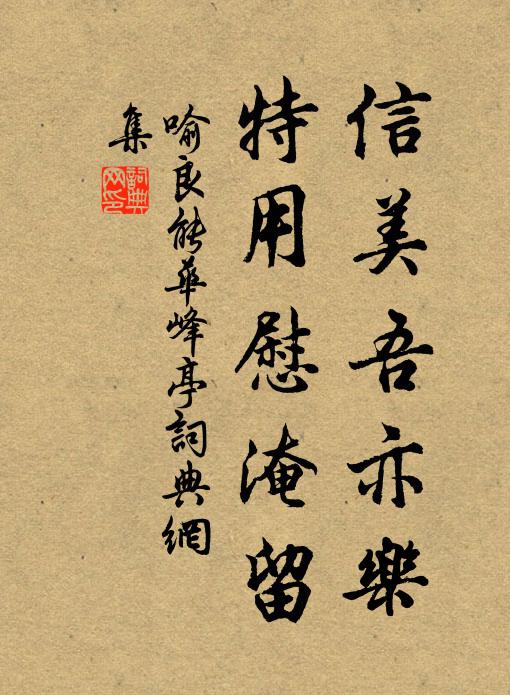 信美吾亦樂
特用慰淹留
喻良能華峰亭詞典網
集
詞典
网印